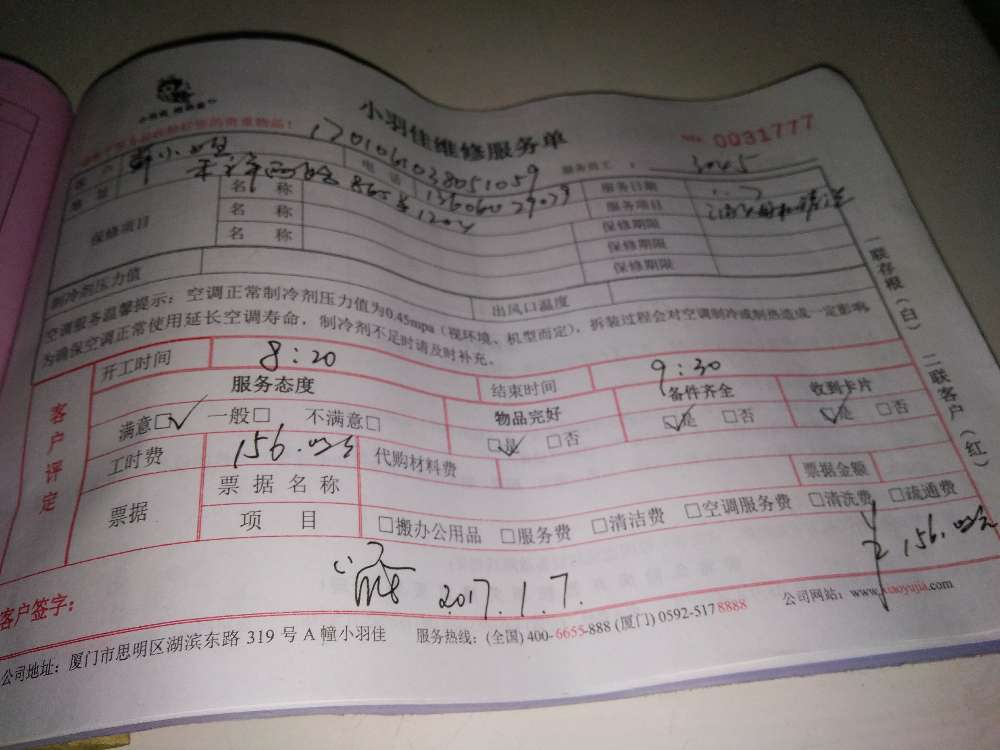 小羽佳维修服务单
NO. 0031777
1701061038051059
客户 小姐 电话 13606029029 服务员工： 3045
地址 服务日期 1.7
保修项目 名 称 服务项目
名 称 保修期限
名 称 保修期限
保修期限
制冷剂压力值 出风口温度
空调服务温馨提示：空调正常制冷剂压力值为0.45mpa（视环境、机型而定），拆装过程会对空调制冷或制热造成一定影响
为确保空调正常使用延长空调寿命，制冷剂不足时请及时补充。
客户评定
开工时间 8:20 结束时间 9:30
服务态度 物品完好 备件齐全 收到卡片
满意□✓ 一般□ 不满意□ □是✓ □否 □是✓ □否 □是✓ □否
工时费 156. 代购材料费
票据 票据名称 票据金额
项 目 □搬办公用品 □服务费 □清洁费 □空调服务费 □清洗费 □疏通费
¥156.
客户签字： 2017.1.7.
公司地址：厦门市思明区湖滨东路 319 号 A 幢小羽佳 服务热线：(全国) 400-6655-888 (厦门) 0592-5178888 公司网站：www.xiaoyujia.com
一联存根（白） 二联客户（红）